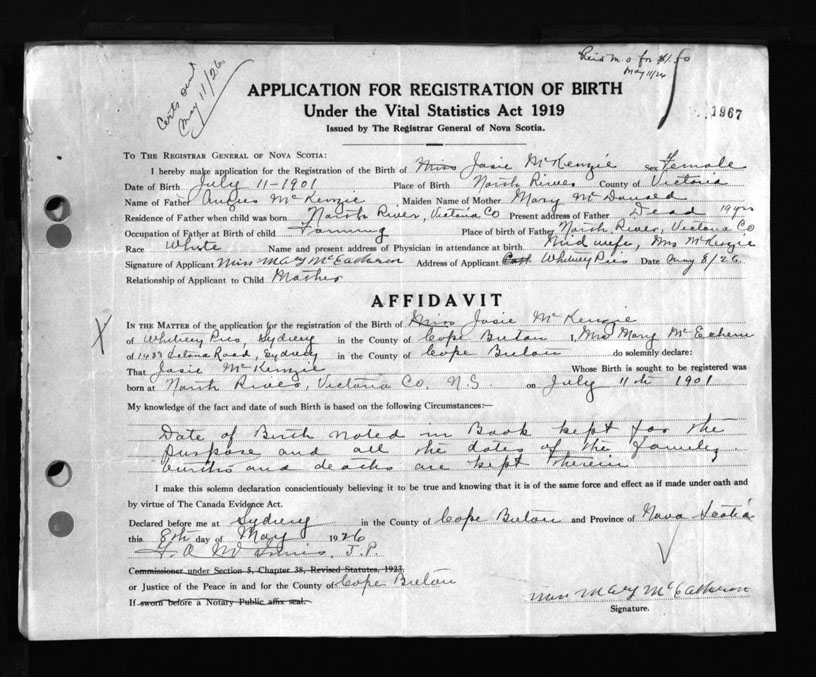 Certs out
May 11/26
May 11/26
1967
APPLICATION FOR REGISTRATION OF BIRTH
Under the Vital Statistics Act 1919
Issued by The Registrar General of Nova Scotia.
TO THE REGISTRAR GENERAL OF NOVA SCOTIA:
I hereby make application for the Registration of the Birth of Miss Josie McKenzie sex Female
Date of Birth July 11-1901 Place of Birth North River County of Victoria
Name of Father Angus McKenzie Maiden Name of Mother Mary McDonald
Residence of Father when child was born North River, Victoria Co Present address of Father Dead 19 yrs
Occupation of Father at Birth of child Farming Place of birth of Father North River, Victoria Co
Race White Name and present address of Physician in attendance at birth Midwife, Mrs McKenzie
Signature of Applicant Mary McEachern Address of Applicant Whitney Pier Date May 8/26
Relationship of Applicant to Child Mother
AFFIDAVIT
IN THE MATTER of the application for the registration of the Birth of Miss Josie McKenzie
of Whitney Pier, Sydney in the County of Cape Breton I, Mrs Mary McEchern
of Road, Sydney in the County of Cape Breton do solemnly declare:
That Josie McKenzie Whose Birth is sought to be registered was
born at North River, Victoria Co, N.S. on July 11th 1901
My knowledge of the fact and date of such Birth is based on the following Circumstances:—
Date of Birth noted in Book kept for the
purpose and all the dates of the family
births and deaths are kept therein
I make this solemn declaration conscientiously believing it to be true and knowing that it is of the same force and effect as if made under oath and
by virtue of The Canada Evidence Act.
Declared before me at Sydney in the County of Cape Breton and Province of Nova Scotia
this 8th day of May 1926
J.P.
Commissioner under Section 5, Chapter 38, Revised Statutes, 1923.
or Justice of the Peace in and for the County of Cape Breton
If sworn before a Notary Public affix seal.
Mary McEachern
Signature.